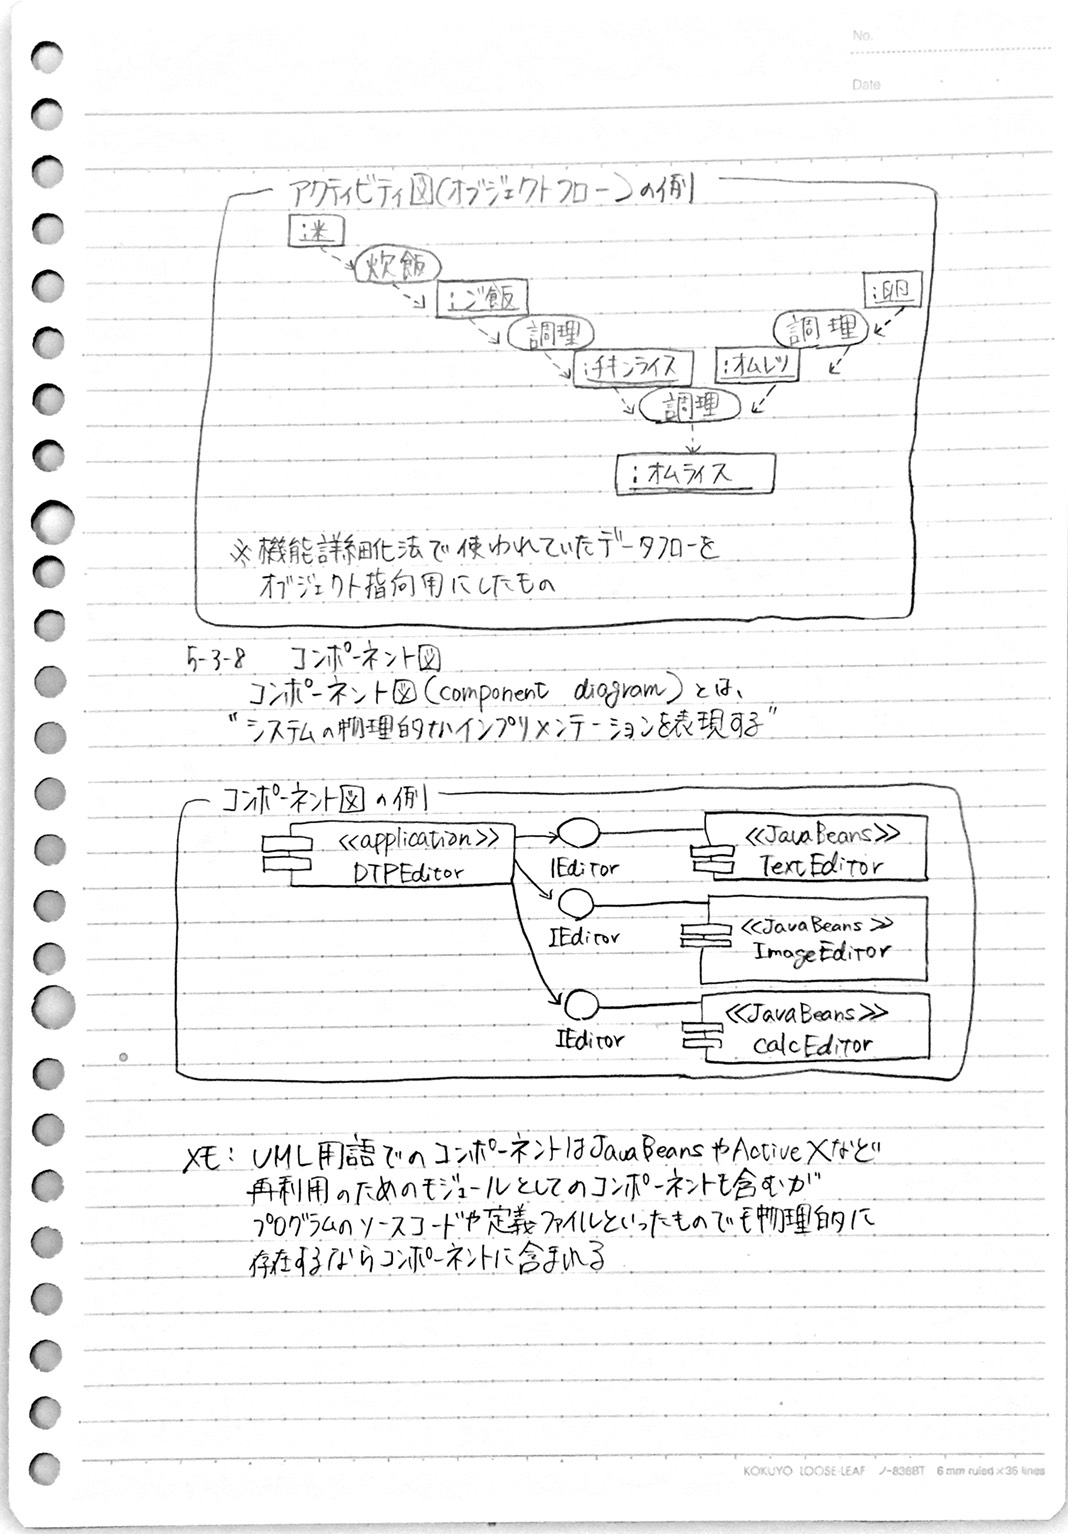 No.
Date
アクティビティ図(オブジェクトフロー)の例
:米
炊飯
:ご飯
:卵
調理
調理
:チキンライス
:オムレツ
調理
:オムライス
※機能詳細化法で使われていたデータフローを
オブジェクト指向用にしたもの
5-3-8 コンポーネント図
コンポーネント図(component diagram)とは、
"システムの物理的なインプリメンテーションを表現する"
コンポーネント図の例
<<application>>
DTPEditor
IEditor
<<JavaBeans>>
TextEditor
IEditor
<<JavaBeans>>
ImageEditor
IEditor
<<JavaBeans>>
CalcEditor
メモ: UML用語でのコンポーネントはJavaBeansやActiveXなど
再利用のためのモジュールとしてのコンポーネントも含むが
プログラムのソースコードや定義ファイルといったものでも物理的に
存在するならコンポーネントに含まれる
KOKUYO LOOSE-LEAF ノ-836BT 6mm ruled×36 lines